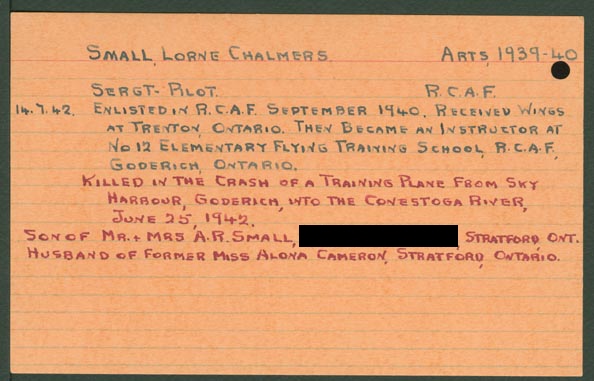 SMALL, LORNE CHALMERS. ARTS, 1939-40
SERGT-PILOT. R.C.A.F.
14.7.42. ENLISTED IN R.C.A.F. SEPTEMBER 1940. RECEIVED WINGS
AT TRENTON, ONTARIO. THEN BECAME AN INSTRUCTOR AT
No 12 ELEMENTARY FLYING TRAINING SCHOOL, R.C.A.F,
GODERICH, ONTARIO.
KILLED IN THE CRASH OF A TRAINING PLANE FROM SKY
HARBOUR, GODERICH, INTO THE CONESTOGA RIVER,
JUNE 25, 1942.
SON OF MR. + MRS A.R. SMALL, , STRATFORD, ONT.
HUSBAND OF FORMER MISS ALONA CAMERON, STRATFORD, ONTARIO.